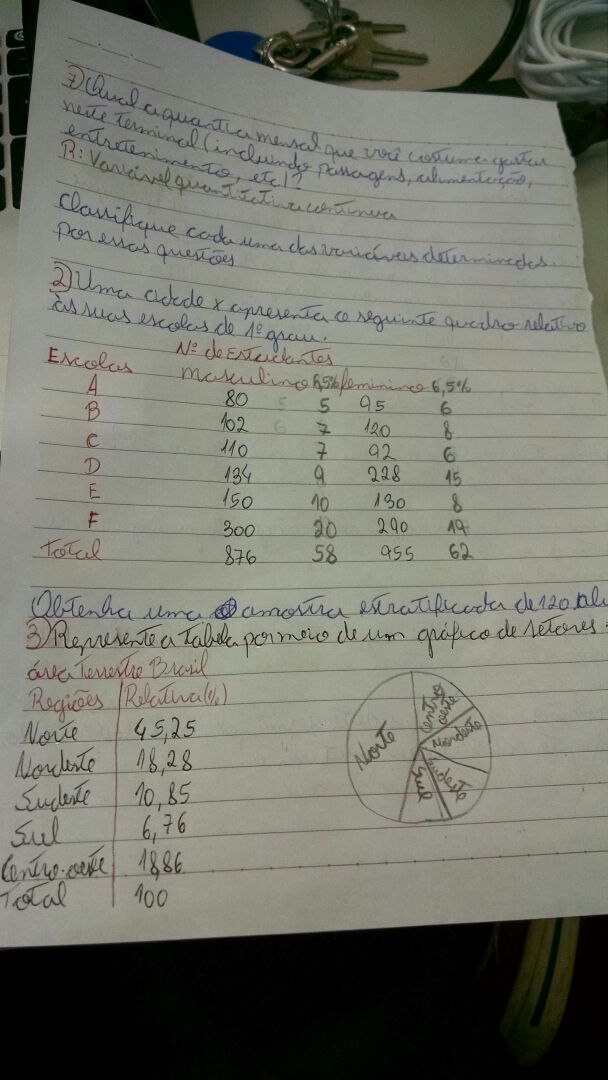 7) Qual a quantia mensal que você costuma gastar
neste terminal (incluindo passagens, alimentação,
entretenimento, etc)?
R: Variável quantitativa continua
Classifique cada uma das variáveis determinadas
por essas questões
2) Uma cidade x apresenta o seguinte quadro relativo
às suas escolas de 1º grau.
Nº de Estudantes
Escolas masculino 6,5% feminino 6,5%
A 80 5 95 6
B 102 7 120 8
C 110 7 92 6
D 134 9 228 15
E 150 10 130 8
F 300 20 290 19
Total 876 58 955 62
Obtenha uma amostra estratificada de 120 alu
3) Represente a tabela por meio de um gráfico de setores:
área Terrestre Brasil
Regiões Relativa (%)
Norte 45,25
Nordeste 18,28
Sudeste 10,85
Sul 6,76
Centro-oeste 18,86
Total 100
Centro
oeste
Nordeste
Norte
Sudeste
Sul